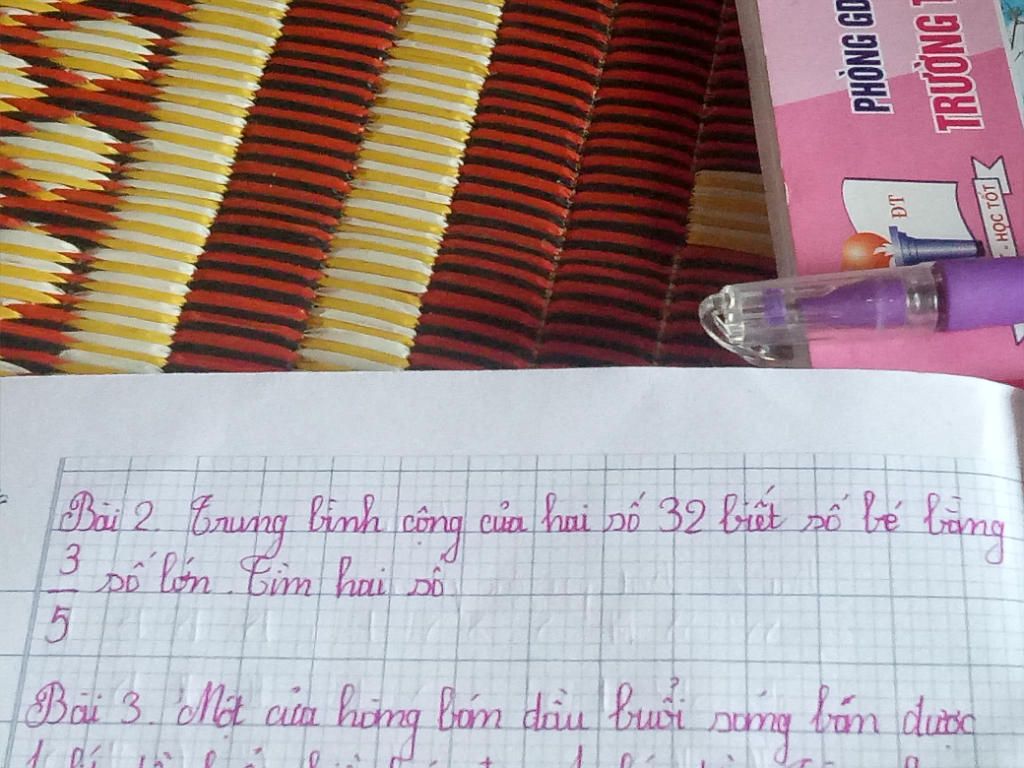 PHÒNG GD
TRƯỜNG T
ĐT
- HỌC TỐT
Bài 2. Trung bình cộng của hai số 32 biết số bé bằng
3/5 số lớn. Tìm hai số
Bài 3. Một cửa hàng bán dầu buổi sáng bán được